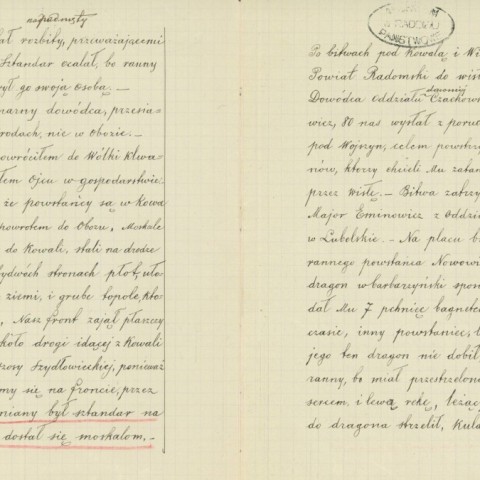 napadnięty
ał rozbity, przeważającemi
sztandar ocalał, bo ranny
ył go swoją osobą. —
narny dowódca, przesia-
rodach, nie w Obozie. —
owróciłem do Wólki Klwa-
łem Ojcu w gospodarstwie
że powstańcy są w Kowa
powrotem do Obozu, Moskale
do Kowali, stali na drodze
ydwóch stronach płot, uło
ziemi, i grube topole, kto
, Nasz front zajął płaszczy
koło drogi idącej z Kowali
rosy Szydłowieckiej, ponieważ
my się na froncie, przez
niany był sztandar na
dostał się moskalom. —
Po bitwach pod Kowalą i Wi
Powiat Radomski do wiś
dawniej
Dowódca Oddziału Czachow
wicz, 80 nas wysłał z poruc
pod Wojszyn, celem powstrzy
nów, ktorzy chcieli Mu zabar
przez wisłę. — Bitwa zatrzy
Major Eminowicz z Oddzia
w Lubelskie. — Na placu b
rannego powstańca Nowowi
dragon w barbarzyński spos
dał Mu 7 pchnięć bagnete
czasie, inny powstaniec, 
jego ten dragon nie dobił
ranny, bo miał przestrzelone
sercem, i lewą rękę, leżąc
do dragona strzelił, Kula